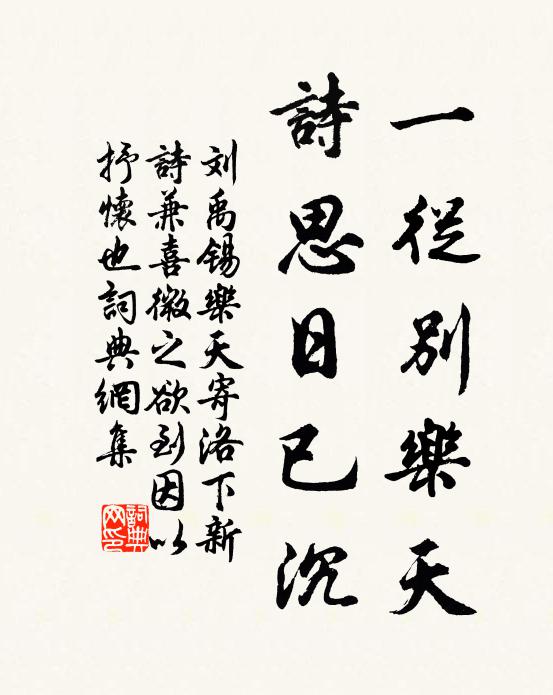 一從別樂天
詩思日已沉
刘禹锡樂天寄洛下新
詩兼喜微之欲到因以
抒懷也詞典網集
詞典
网印